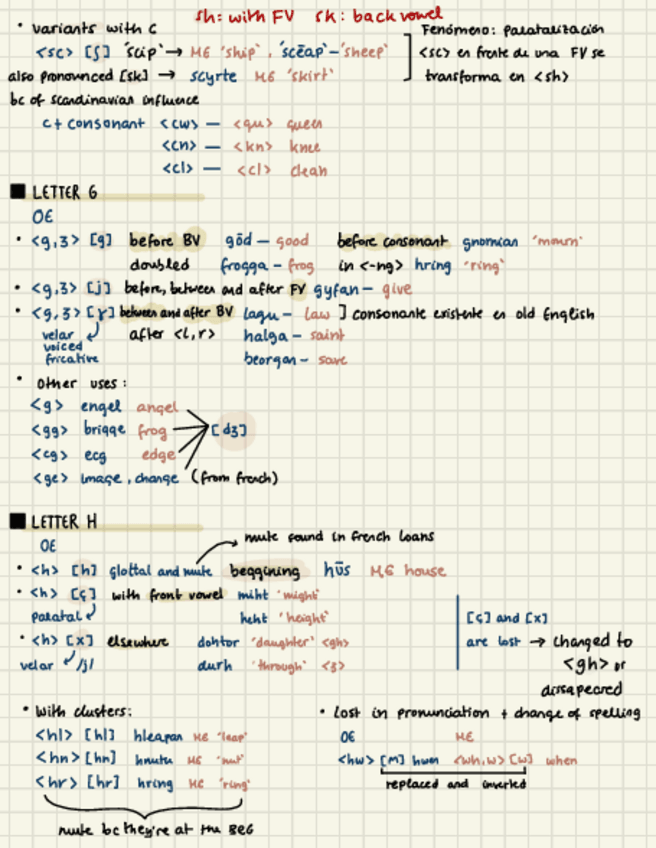 sh: with FV sk: back vowel
• variants with C
<sc> [ʃ] 'scip' → ME 'ship', 'scēap' – 'sheep'
also pronounced [sk] → scyrte ME 'skirt'
bc of scandinavian influence
Fenómeno: palatalización
<sc> en frente de una FV se
transforma en <sh>
c + consonant <cw> — <qu> queen
<cn> — <kn> knee
<cl> — <cl> clean
■ LETTER G
OE
• <g,ȝ> [g] before BV gōd – good before consonant gnornian 'mourn'
doubled frogga – frog in <-ng> hring 'ring'
• <g,ȝ> [j] before, between and after FV gyfan – give
• <g,ȝ> [ɣ] between and after BV lagu – law ] consonante existente en old English
velar voiced fricative
after <l,r> halga – saint
beorgan – save
• other uses:
<g> engel angel
<gg> brigge frog
<cg> ecg edge
<ge> image, change (from french)
[dʒ]
■ LETTER H
OE
mute found in french loans
• <h> [h] glottal and mute beggining hūs ME house
• <h> [ç] with front vowel miht 'might'
palatal heht 'height'
• <h> [x] elsewhere dohtor 'daughter' <gh>
velar /j/ durh 'through' <ȝ>
[ç] and [x]
are lost → changed to
<gh> or
dissapeared
• With clusters:
<hl> [hl] hleapan ME 'leap'
<hn> [hn] hnutu ME 'nut'
<hr> [hr] hring ME 'ring'
mute bc they're at the BEG
• Lost in pronunciation + change of spelling
OE ME
<hw> [ʍ] hwen <wh,w> [w] when
replaced and inverted